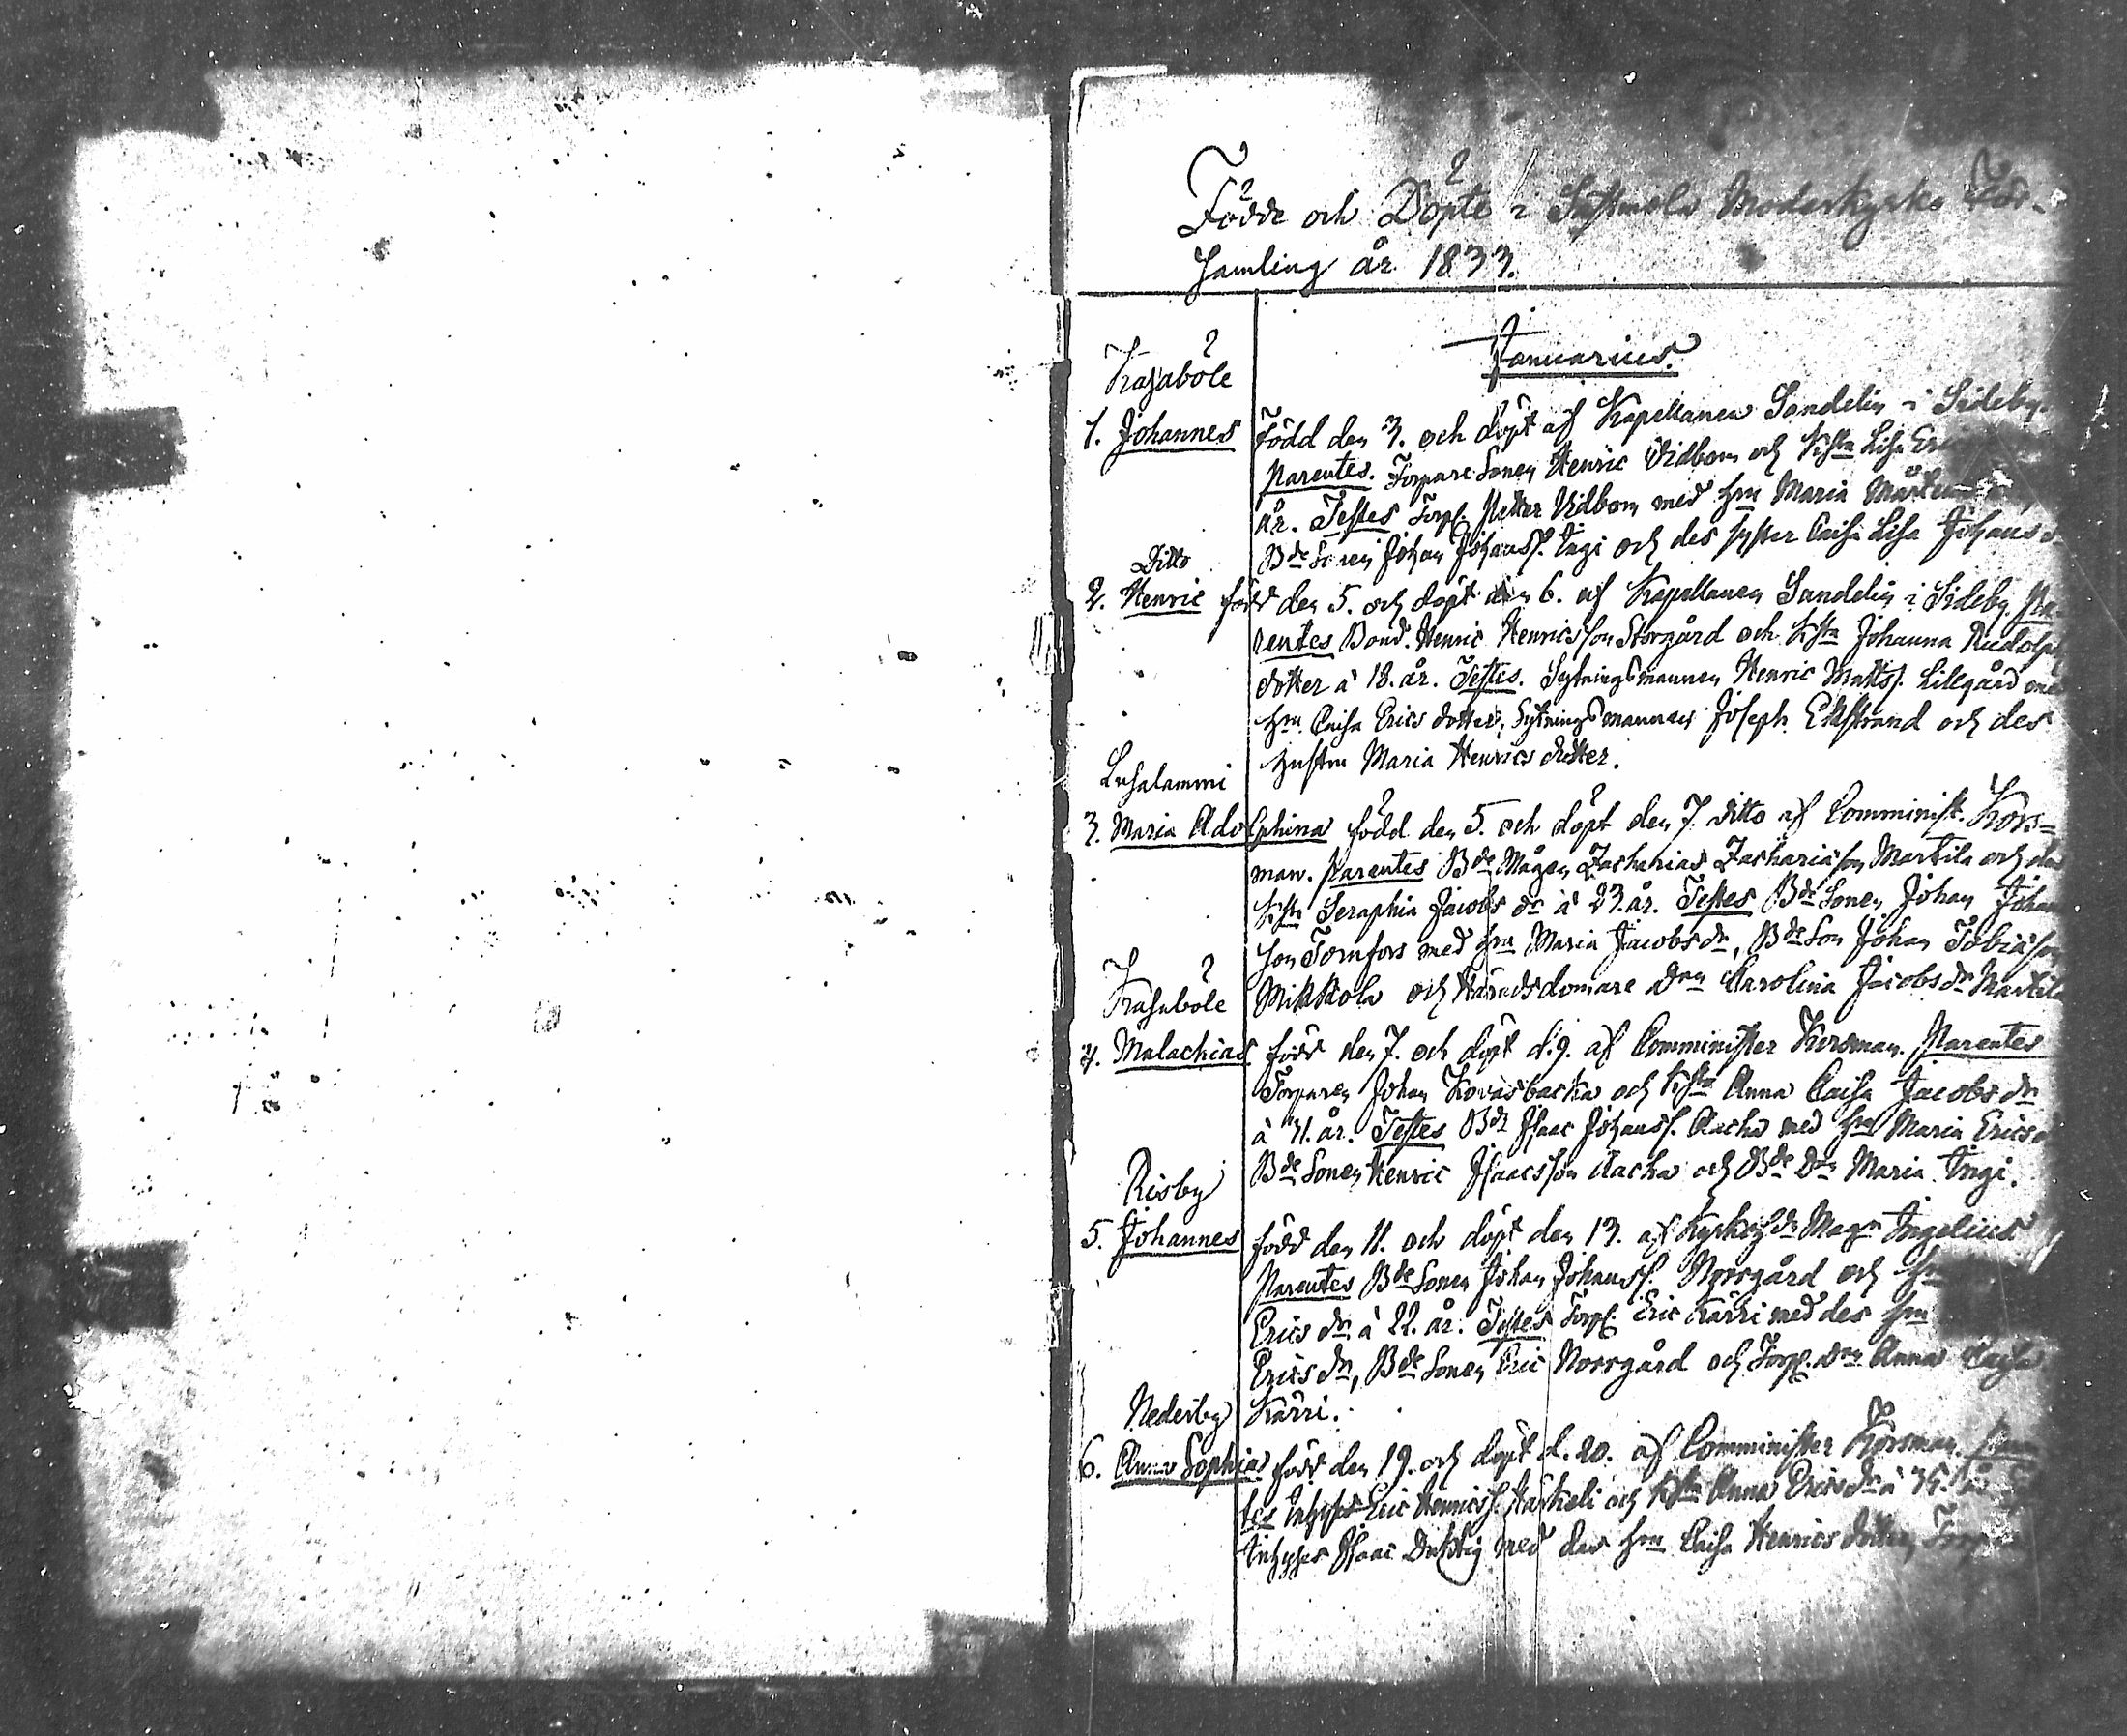 Födde och Döpte i Sastmola Moderkyrko För-
samling år 1833.
Januarius.
Kasaböle
1. Johannes Född den 3. och döpt af Kapellanen Sandelin i Sideby.
Parentes. Torpare Sonen Henric Vidbom och Hstr Lisa
år. Testes Torp. Petter Vidbom med Hru Maria
Bde Sonen Johan Johanss. Ingi och des syster Caisa Lisa Johans d
Ditto
2. Henric född den 5. och döpt den 6. af Kapellanen Sandelin i Sideby. Pa-
rentes Bond. Henric Henricsson Storgård och Hstr Johanna Rudolphs
dotter à 18. år. Testes. Sytningsmannen Henric Matts. Lillgård med
Hru Caisa Erics dotter, Sytningsmannen Joseph Ekstrand och des
hustru Maria Henrics dotter.
Lusalammi
3. Maria Adolphina född den 5. och döpt den 7. ditto af Comminist. Kors=
man. Parentes Bde Mågen Zacharias Zachariasson Martila och des
Hstr Seraphia Jacobs dr à 23. år. Testes Bde Sonen Johan Johan
son Tornfors med hru Maria Jacobs dr, Bde Son Johan Tobiasson
Mikkola och Häradsdomare drn Carolina Jacobs dr Martila
Kasaböle
4. Malachias född den 7. och döpt d. 9. af Comminister Korsman. Parentes
Torparen Johan Kovasbacka och Hstr Anna Caisa Jacobs dr
à 41. år. Testes Bde Isaac Johanss. Aacka med hru Maria Erics d
Bde Sonen Henric Isaacsson Aacka och Bde Drn Maria Ingi.
Risby
5. Johannes född den 11. och döpt den 13. af Kyrkohde Magr Ingelius
Parentes Bde Sonen Johan Johanss. Norrgård och
Erics dr à 22. år. Testes Torp. Eric Kärri med des hru
Erics dr, Bde Sonen Eric Norrgård och Torp. drn Anna
Kärri.
Nederby
6. Anna Sophia född den 19. och döpt d. 20. af Comminister Korsman. Paren
tes Inhyses Eric Henrics. Harkeli och Hstr Anna Erics dr à 35. år
Inhyses Isaac Duktig med des hru Caisa Henrics dotter, Torp